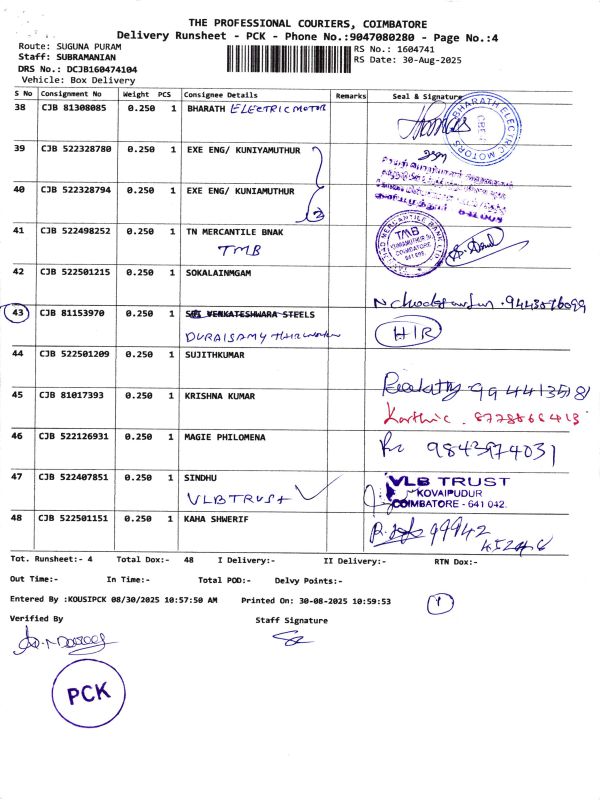 THE PROFESSIONAL COURIERS, COIMBATORE
Delivery Runsheet - PCK - Phone No.:9047080280 - Page No.:4
Route: SUGUNA PURAM
RS No.: 1604741
Staff: SUBRAMANIAN
RS Date: 30-Aug-2025
DRS No.: DCJB160474104
Vehicle: Box Delivery
S No Consignment No Weight PCS Consignee Details Remarks Seal & Signature
38 CJB 81308085 0.250 1 BHARATH ELECTRIC MOTOR
BHARATH ELECTRIC MOTORS
CBE
39 CJB 522328780 0.250 1 EXE ENG/ KUNIYAMUTHUR
40 CJB 522328794 0.250 1 EXE ENG/ KUNIAMUTHUR
2
41 CJB 522498252 0.250 1 TN MERCANTILE BNAK
TMB
TMB
COIMBATORE
42 CJB 522501215 0.250 1 SOKALAINMGAM
43 CJB 81153970 0.250 1 SRI VENKATESHWARA STEELS
DURAISAMY
HIR
44 CJB 522501209 0.250 1 SUJITHKUMAR
45 CJB 81017393 0.250 1 KRISHNA KUMAR
Karthic. 8778866413
46 CJB 522126931 0.250 1 MAGIE PHILOMENA
9843974031
47 CJB 522407851 0.250 1 SINDHU
VLB TRUST
VLB TRUST
KOVAIPUDUR
COIMBATORE - 641 042.
48 CJB 522501151 0.250 1 KAHA SHWERIF
99942
45248
Tot. Runsheet:- 4 Total Dox:- 48 I Delivery:- II Delivery:- RTN Dox:-
Out Time:- In Time:- Total POD:- Delvy Points:-
Entered By :KOUSIPCK 08/30/2025 10:57:50 AM Printed On: 30-08-2025 10:59:53
Verified By Staff Signature
PCK